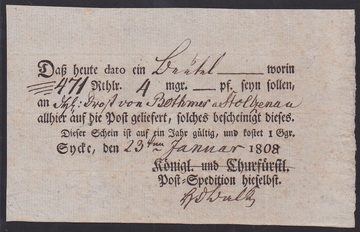 Daß heute dato ein Beutel — worin
471 Rthlr. 4 mgr. — pf. seyn sollen,
an von Bothmer Stolzenau
allhier auf die Post geliefert, solches bescheiniget dieses.
Dieser Schein ist auf ein Jahr gültig, und kostet 1 Ggr.
Sycke, den 23ten Januar 1808
Königl. und Churfürstl.
Post-Spedition hieselbst.